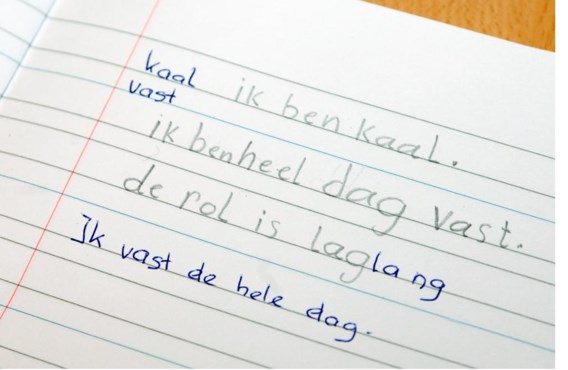 kaal ik ben kaal.
vast
ik ben heel dag vast.
de rol is lag lang
Ik vast de hele dag.